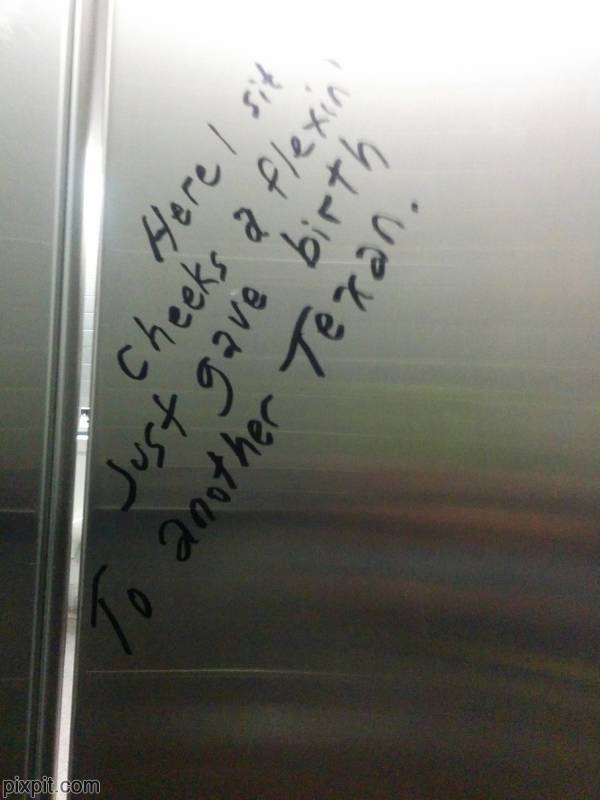 Here I sit
Cheeks a flexin'
Just gave birth
To another Texan.
pixpit.com